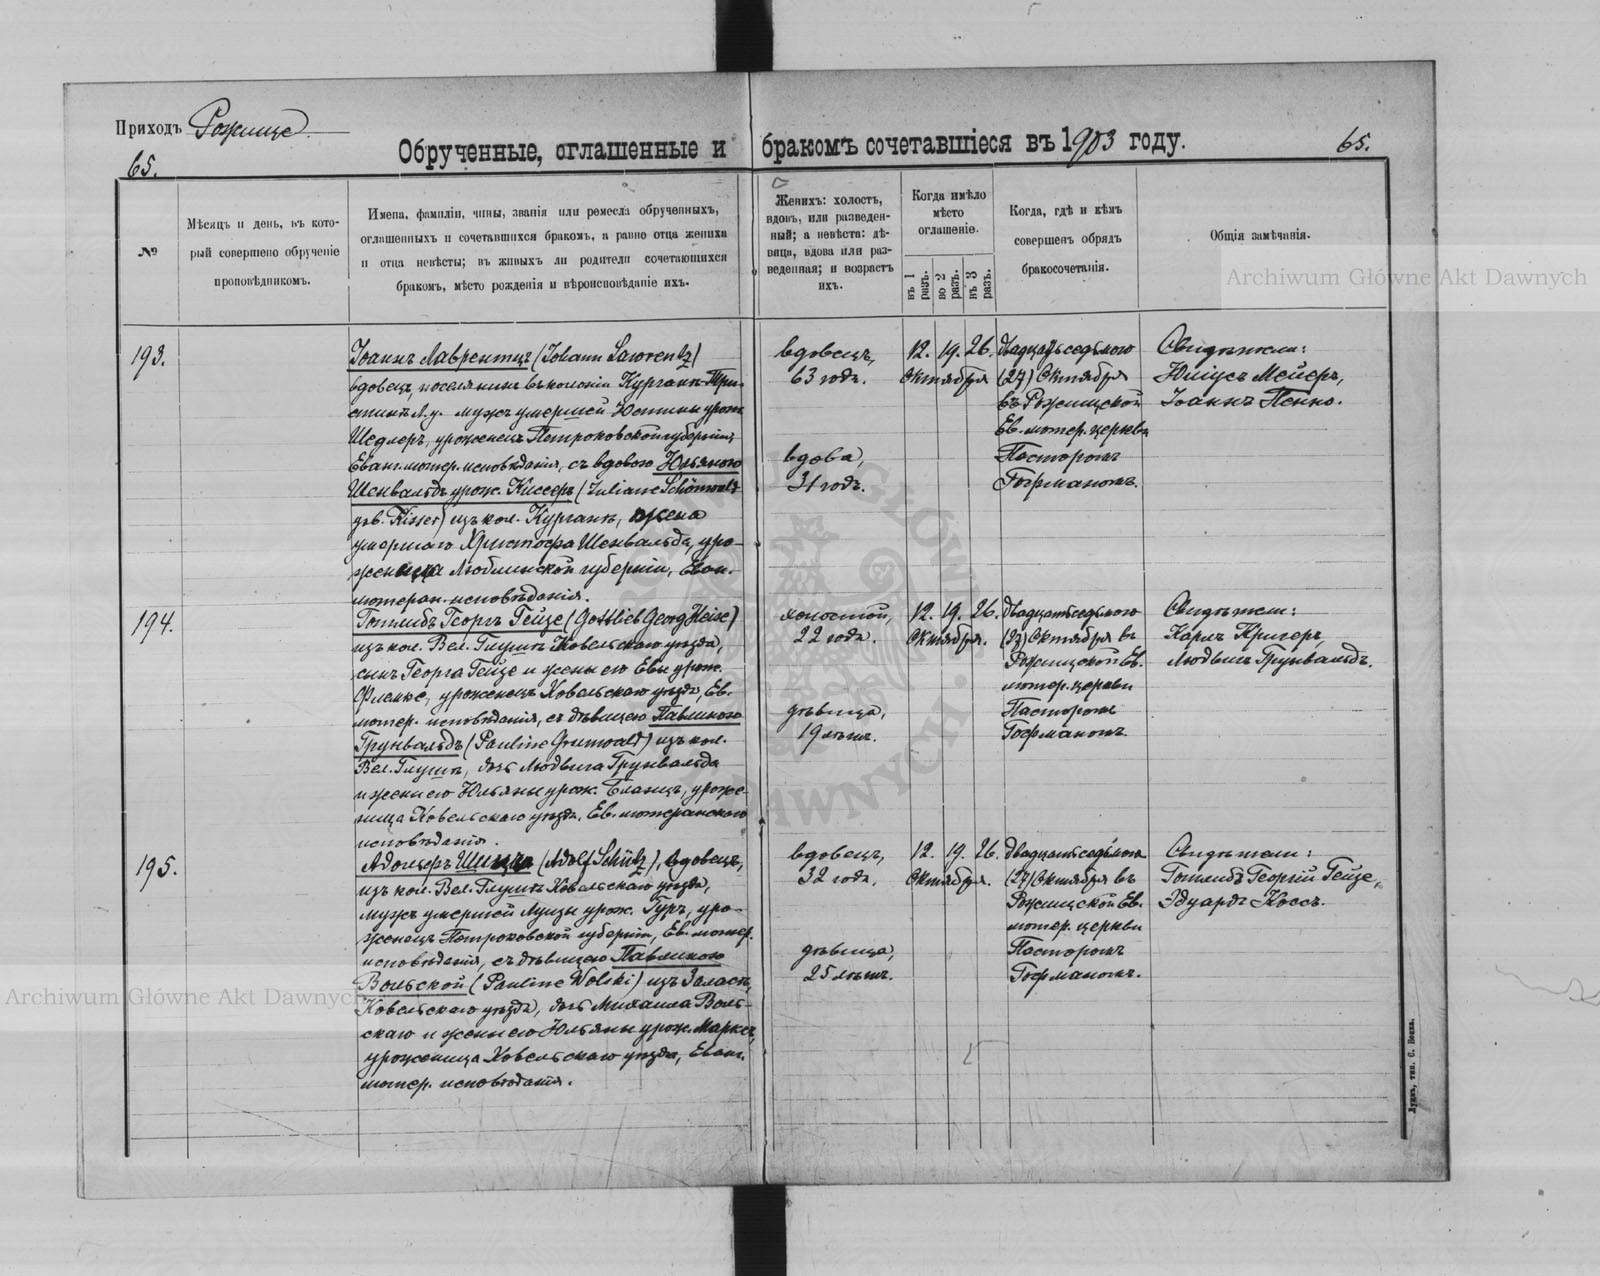 Приходъ Рожище
65.
Обрученные, оглашенные и бракомъ сочетавшіеся въ 1903 году.
65.
№
Мѣсяцъ и день, въ кото-
рый совершено обрученіе
проповѣдникомъ.
Имена, фамиліи, чины, званія или ремесла обрученныхъ,
оглашенныхъ и сочетавшихся бракомъ, а равно отца жениха
и отца невѣсты; въ живыхъ ли родители сочетающихся
бракомъ, мѣсто рожденія и вѣроисповѣданіе ихъ.
Женихъ: холостъ,
вдовъ, или разведен-
ный; а невѣста: дѣ-
вица, вдова или раз-
веденная; и возрастъ
ихъ.
Когда имѣло
мѣсто
оглашеніе.
въ 1 разъ.
во 2 разъ.
въ 3 разъ.
Когда, гдѣ и кѣмъ
совершенъ обрядъ
бракосочетанія.
Общія замѣчанія.
Archiwum Główne Akt Dawnych
193.
Іоаннъ Лаврентцъ (Johann Lawrentz)
вдовецъ, поселянинъ въ колоніи Курганъ-
Л. у. мужъ умершей Юстины урож.
Шедлеръ, уроженецъ Петроковской губерніи,
Еванг. лютер. исповѣданія, съ вдовою Юльяною
Шенвальдъ урож. Киссеръ (Juliane Schönwald
geb. Kisser) изъ кол. Курганъ, жена
умершаго Христофа Шенвальда, уро-
женица Люблинской губерніи, Еван.
лютеран. исповѣданія.
вдовецъ,
63 годъ.
вдова,
31 годъ.
12. 19. 26.
Октября
двадцать седьмого
(27) Октября
въ Рожищской
Ев. лютер. церкви
Пасторомъ
Гофманомъ.
Свидѣтели:
Юліусъ Мейеръ,
Іоаннъ Пенно.
194.
Готлибъ Георгъ Гейзе (Gottlieb Georg Heise)
изъ кол. Вел. Глушъ Ковельскаго уѣзда,
сынъ Георга Гейзе и жены его Евы урож.
Фленке, уроженецъ Ковельскаго уѣзда, Ев.
лютер. исповѣданія, съ дѣвицею Павлиною
Грунвальдъ (Pauline Grunwald) изъ кол.
Вел. Глушъ, дочь Людвига Грунвальда
и жены его Юльяны урож. Бланцъ, уроже-
ница Ковельскаго уѣзда, Ев. лютеранскаго
исповѣданія.
холостой,
22 года.
дѣвица,
19 лѣтъ.
12. 19. 26.
Октября.
двадцать седьмого
(27) Октября въ
Рожищской Ев.
лютер. церкви
Пасторомъ
Гофманомъ
Свидѣтели:
Карлъ Кригеръ,
Людвигъ Грунвальдъ.
195.
Адольфъ Шицъ (Adolf Schütz), вдовецъ,
изъ кол. Вел. Глушъ Ковельскаго уѣзда,
мужъ умершей Луизы урож. Гуръ, уро-
женецъ Петроковской губерніи, Ев. лютер.
исповѣданія, съ дѣвицею Павлиною
Вольской (Pauline Wolski) изъ Заласъ,
Ковельскаго уѣзда, дочь Михаила Воль-
скаго и жены его Юльяны урож. Марксъ,
уроженица Ковельскаго уѣзда, Еванг.
лютер. исповѣданія.
вдовецъ,
32 года.
дѣвица,
25 лѣтъ.
12. 19. 26.
Октября.
двадцать седьмого
(27) Октября въ
Рожищской Ев.
лютер. церкви
Пасторомъ
Гофманомъ.
Свидѣтели:
Готлибъ Георгій Гейзе,
Эдуардъ Коссъ.
Archiwum Główne Akt Dawnych
Луцкъ, тип. С. Бокса.